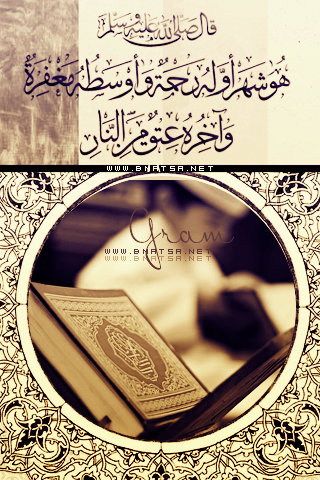 قال صلى الله عليه وسلم
هو شهر أوله رحمة وأوسطه مغفرة
وآخره عتق من النار
WWW.BNATSA.NET
Gram
WWW.BNATSA.NET
WWW.BNATSA.NET